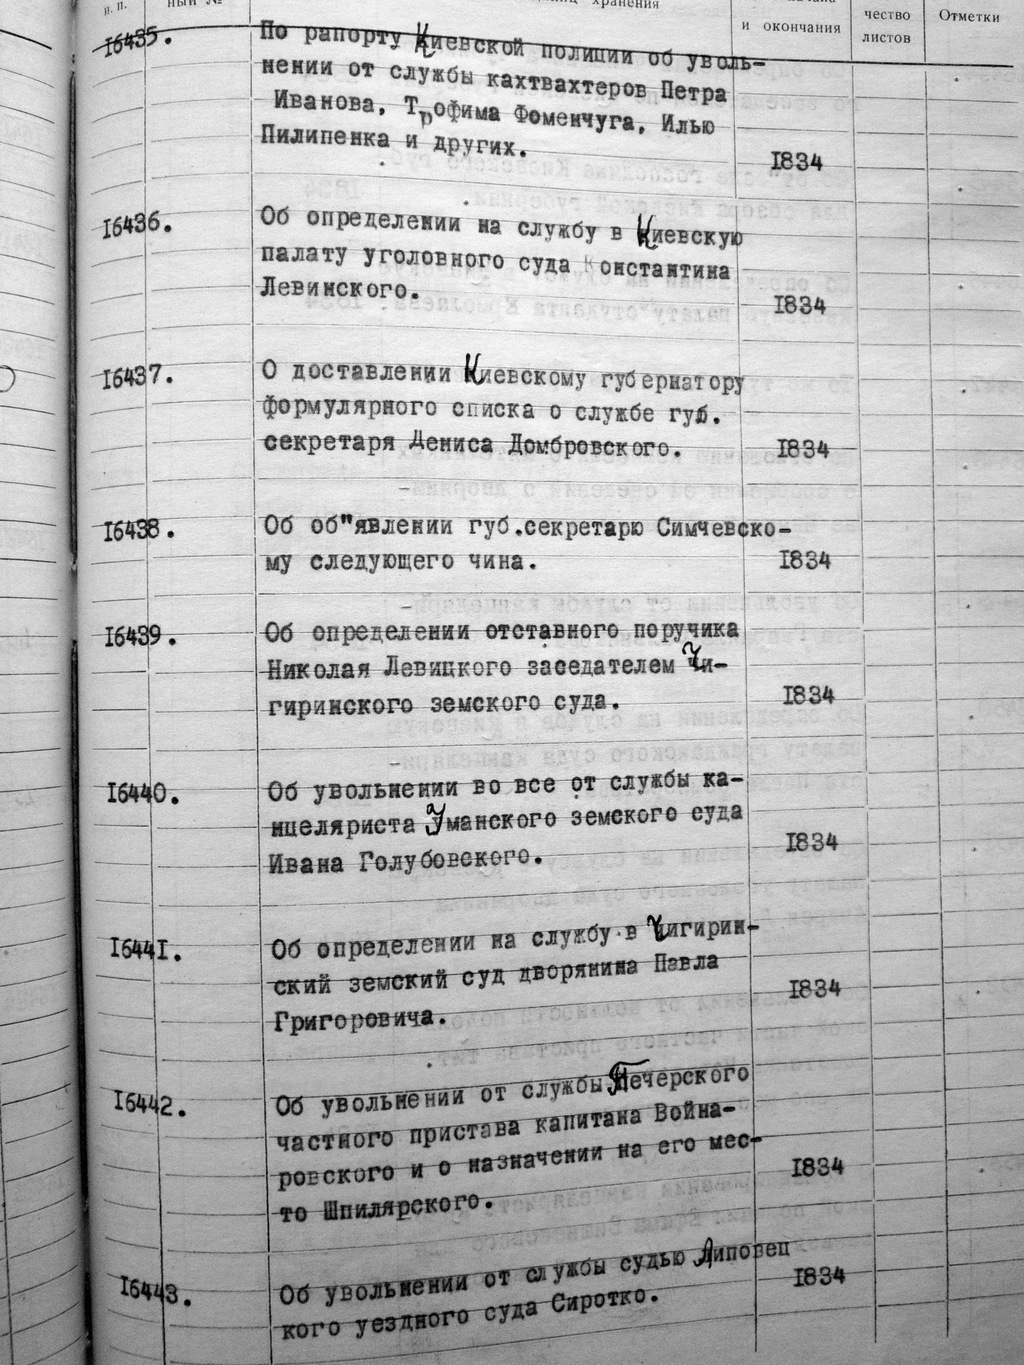 п. п.
ный №
хранения
и окончания
чество
листов
Отметки
16435.
По рапорту Киевской полиции об уволь-
нении от службы кахтвахтеров Петра
Иванова, Трофима Фоменчуга, Илью
Пилипенка и других.
1834
16436.
Об определении на службу в Киевскую
палату уголовного суда Константина
Левинского.
1834
16437.
О доставлении Киевскому губернатору
формулярного списка о службе губ.
секретаря Дениса Домбровского.
1834
16438.
Об об"явлении губ.секретарю Симчевско-
му следующего чина.
1834
16439.
Об определении отставного поручика
Николая Левицкого заседателем Чи-
гиринского земского суда.
1834
16440.
Об увольнении во все от службы ка-
нцеляриста Уманского земского суда
Ивана Голубовского.
1834
16441.
Об определении на службу в Чигирин-
ский земский суд дворянина Павла
Григоровича.
1834
16442.
Об увольнении от службы Печерского
частного пристава капитана Война-
ровского и о назначении на его мес-
то Шпилярского.
1834
16443.
Об увольнении от службы судью Липовец
кого уездного суда Сиротко.
1834